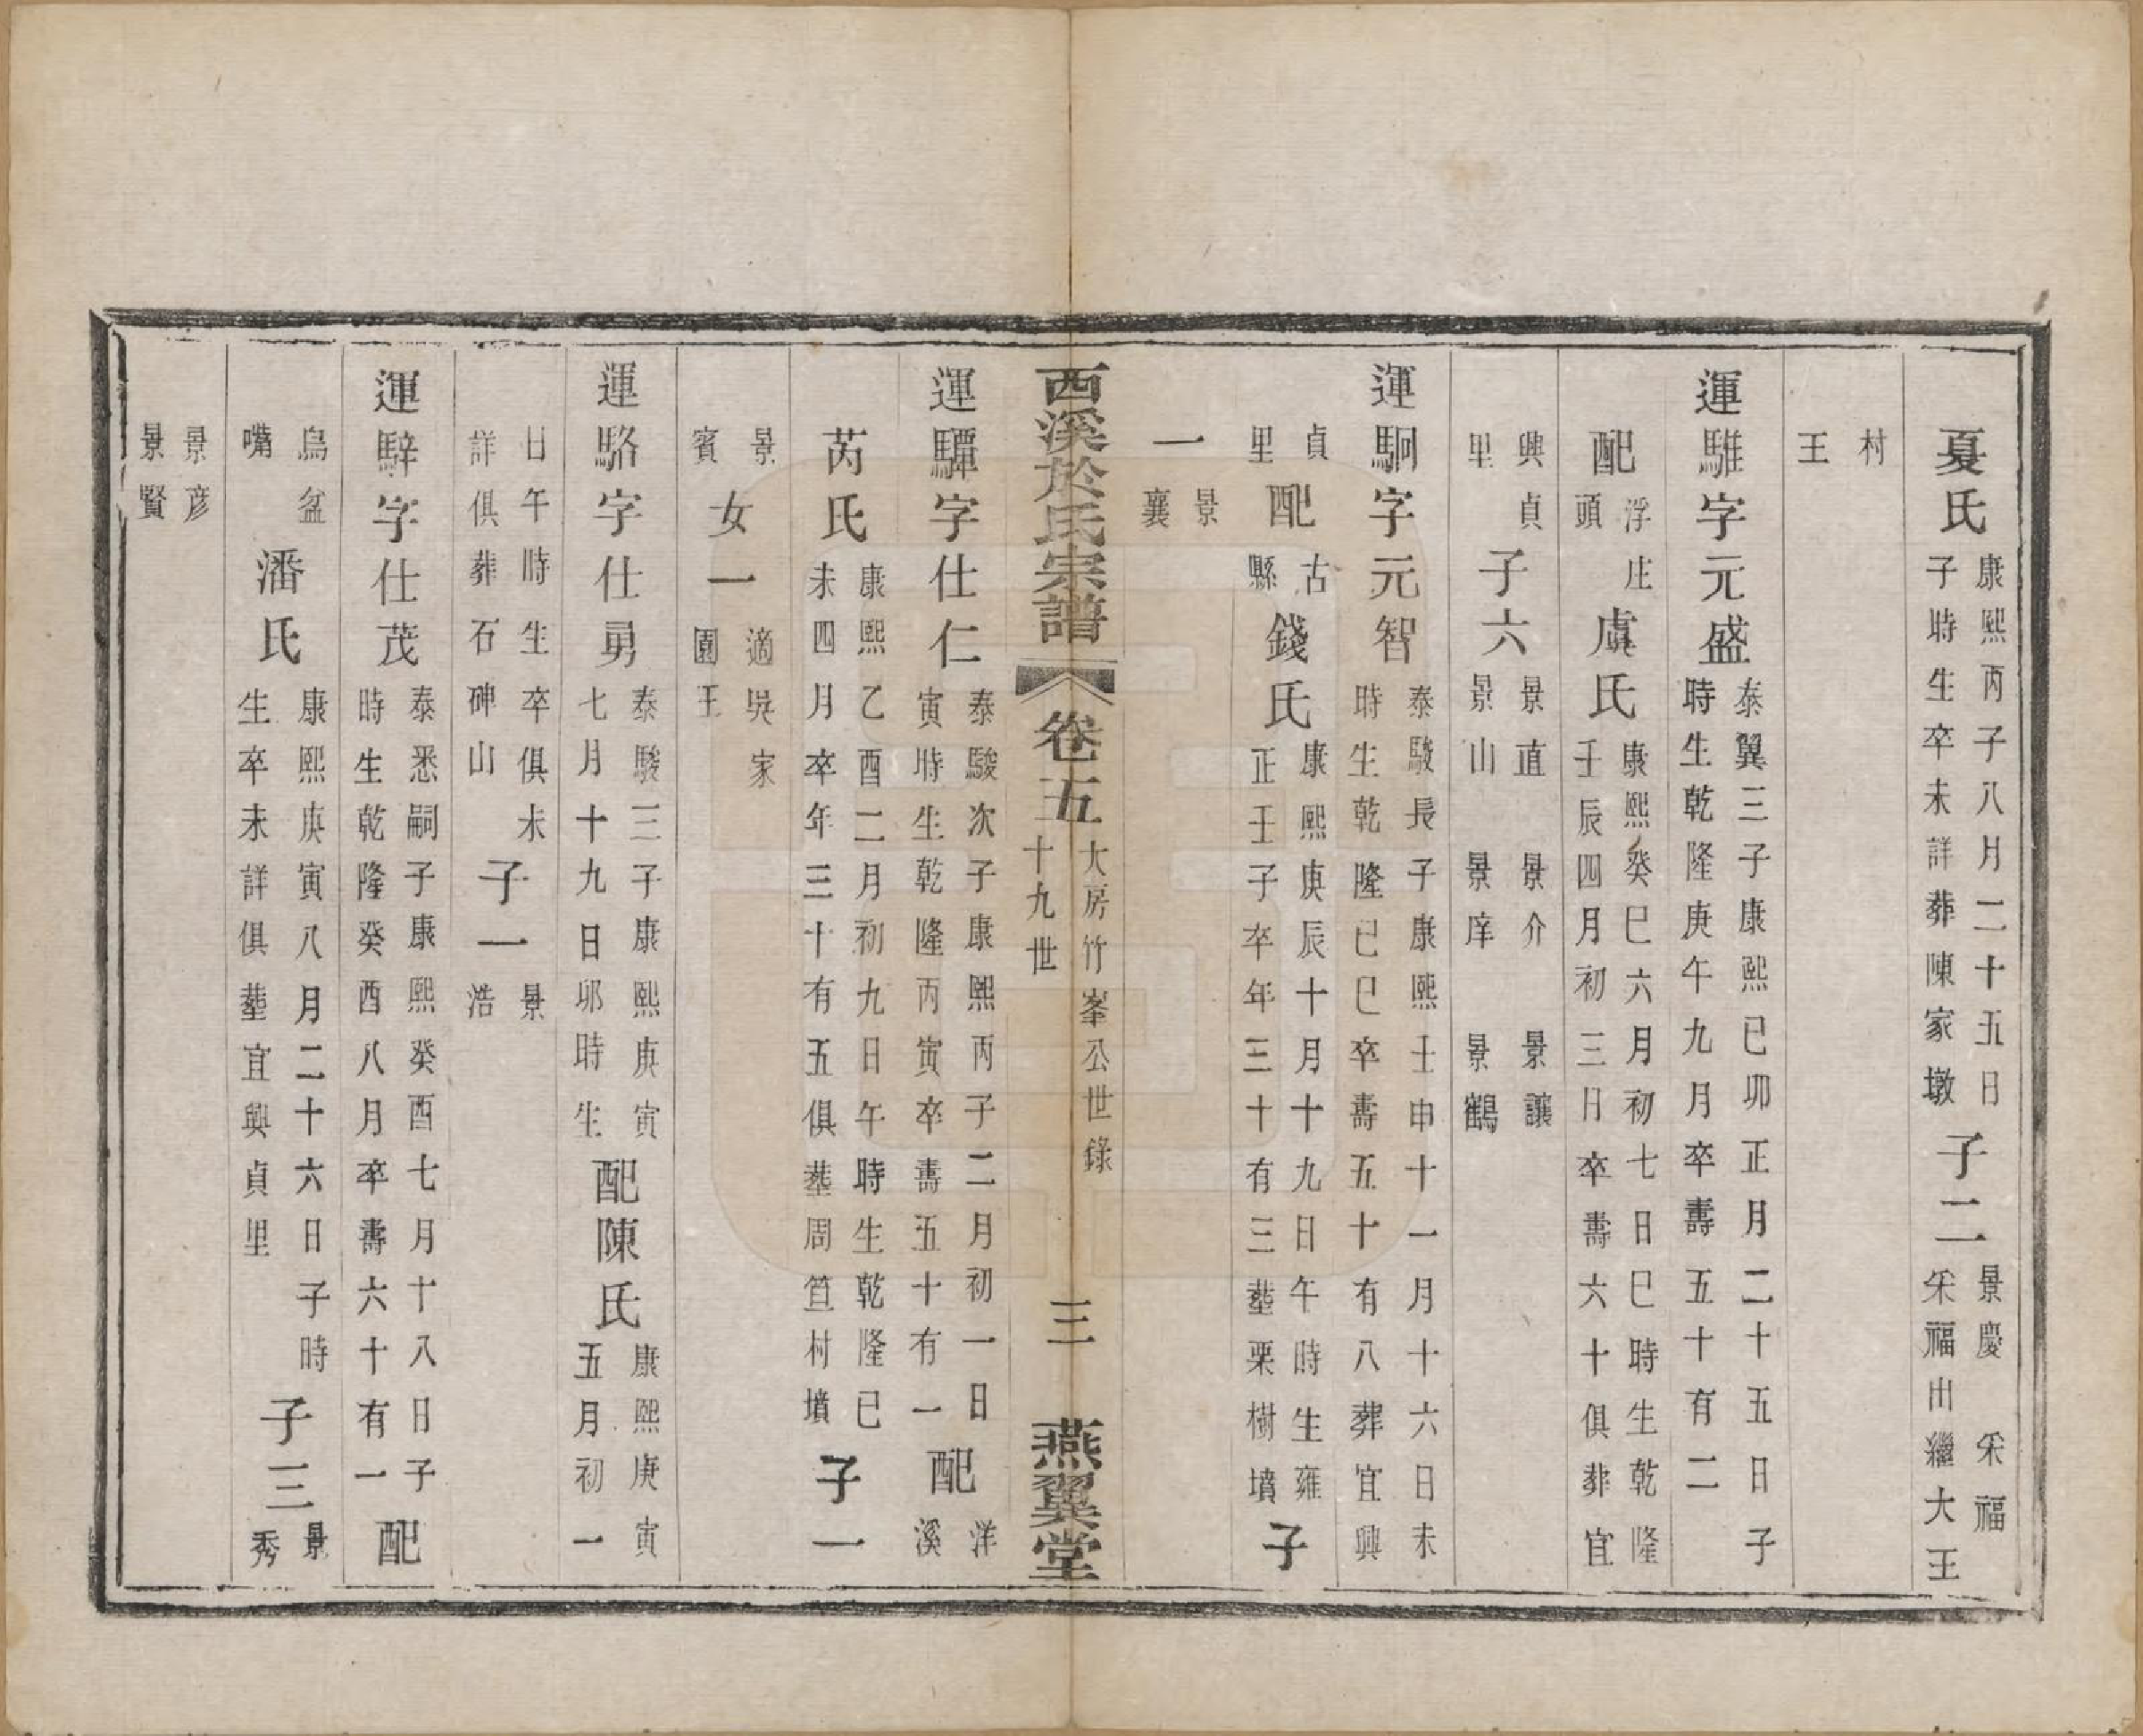 夏氏康熙丙子八月二十五日子時生卒未詳葬陳家墩子二景慶 采福采福出繼大王
村王
運騅字元盛泰翼三子康熙己卯正月二十五日子時生乾隆庚午九月卒壽五十有二
配浮庄頭虞氏康熙癸巳六月初七日巳時生乾隆壬辰四月初三日卒壽六十俱葬宜
興貞里子六景直 景介 景讓景山 景庠 景鶴
運駉字元智泰駿長子康熙壬申十一月十六日未時生乾隆己巳卒壽五十有八葬宜興
貞里配古縣錢氏康熙庚辰十月十九日午時生雍正壬子卒年三十有三塟栗樹墳子
一景襄
西溪於氏宗譜 卷五 大房竹峯公世錄十九世 三 燕翼堂
運驔字仕仁泰駿次子康熙丙子二月初一日寅時生乾隆丙寅卒壽五十有一配洋溪
芮氏康熙乙酉二月初九日午時生乾隆己未四月卒年三十有五俱塟周笪村墳子一
景賓女一適吳家圍王
運駱字仕勇泰駿三子康熙庚寅七月十九日卯時生配陳氏康熙庚寅五月初一
日午時生卒俱未詳俱葬石碑山子一景浩
運騂字仕茂泰悉嗣子康熙癸酉七月十八日子時生乾隆癸酉八月卒壽六十有一配
烏盆嘴潘氏康熙庚寅八月二十六日子時生卒未詳俱塟宜興貞里子三景秀
景彦景賢